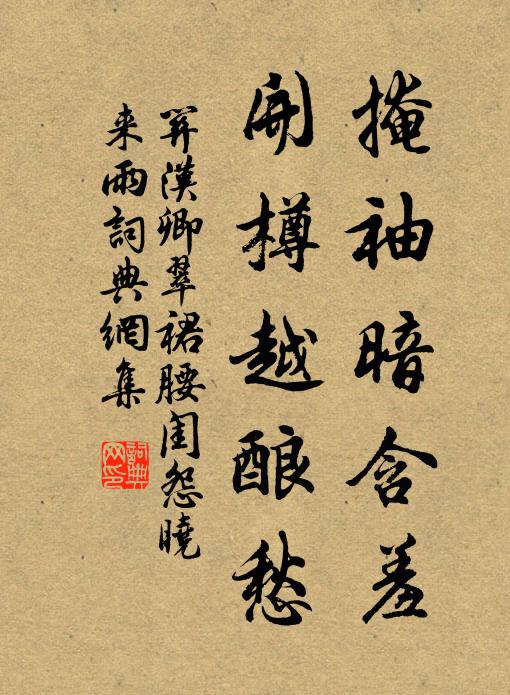 掩袖暗含羞
開樽越酿愁
关漢卿翠裙腰闺怨曉
来雨詞典網集
詞典网印